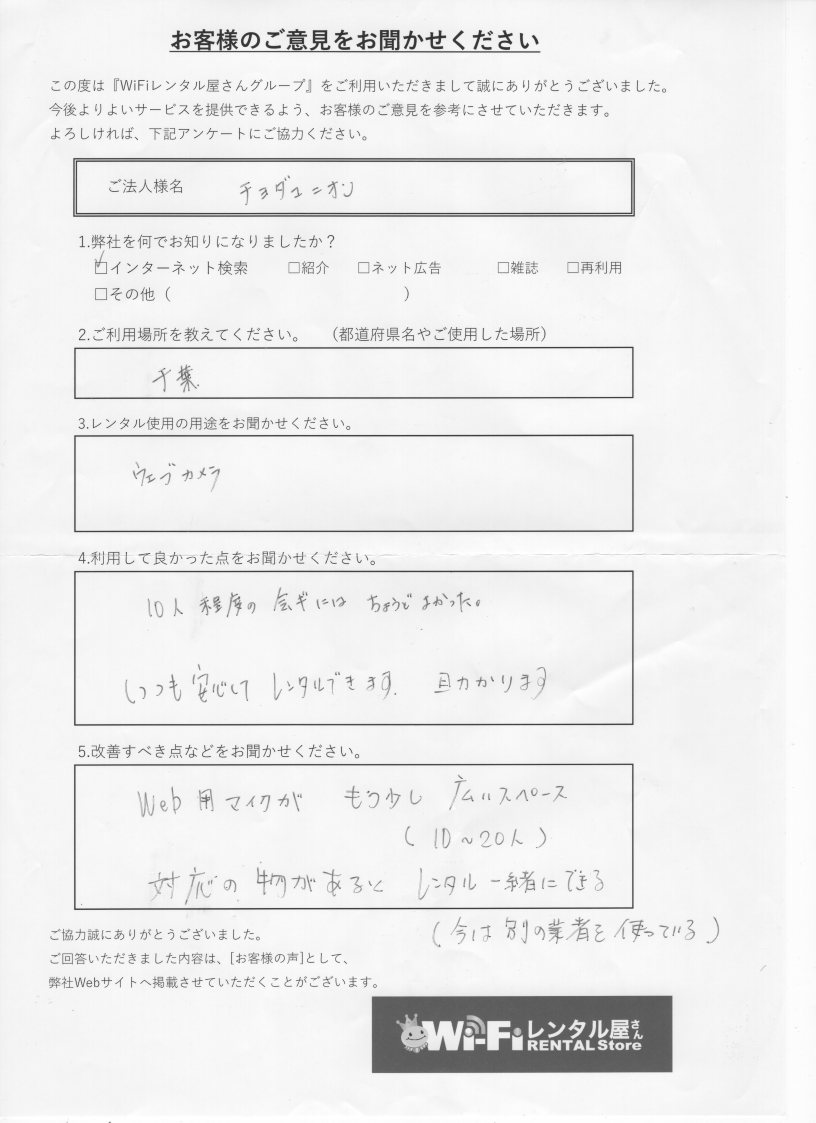 お客様のご意見をお聞かせください
この度は『WiFiレンタル屋さんグループ』をご利用いただきまして誠にありがとうございました。
今後よりよいサービスを提供できるよう、お客様のご意見を参考にさせていただきます。
よろしければ、下記アンケートにご協力ください。
ご法人様名 チヨダユニオン
1.弊社を何でお知りになりましたか？
☑インターネット検索 □紹介 □ネット広告 □雑誌 □再利用
□その他（ ）
2.ご利用場所を教えてください。 （都道府県名やご使用した場所）
千葉
3.レンタル使用の用途をお聞かせください。
ウェブカメラ
4.利用して良かった点をお聞かせください。
10人程度の会ギにはちょうどよかった。
いつも安心してレンタルできます。 助かります
5.改善すべき点などをお聞かせください。
Web用マイクが もう少し 広いスペース
（10～20人）
対応の物があると レンタル一緒にできる
（今は別の業者を使っている）
ご協力誠にありがとうございました。
ご回答いただきました内容は、[お客様の声]として、
弊社Webサイトへ掲載させていただくことがございます。
Wi-Fiレンタル屋さん
RENTAL Store